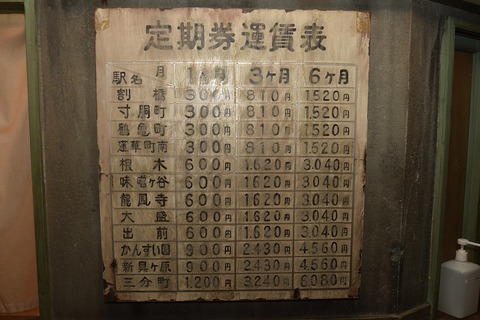 定期券運賃表
駅名 月 1ヶ月 3ヶ月 6ヶ月
割橋 300円 810円 1.520円
寸胴町 300円 810円 1.520円
鶴亀町 300円 810円 1.520円
蓮華町南 300円 810円 1.520円
根木 600円 1.620円 3.040円
味噌ヶ谷 600円 1.620円 3.040円
龍鳳寺 600円 1.620円 3.040円
大盛 600円 1.620円 3.040円
出前 600円 1.620円 3.040円
かんすい園 900円 2.430円 4.560円
新具ヶ原 900円 2.430円 4.560円
三分町 1.200円 3.240円 6.080円